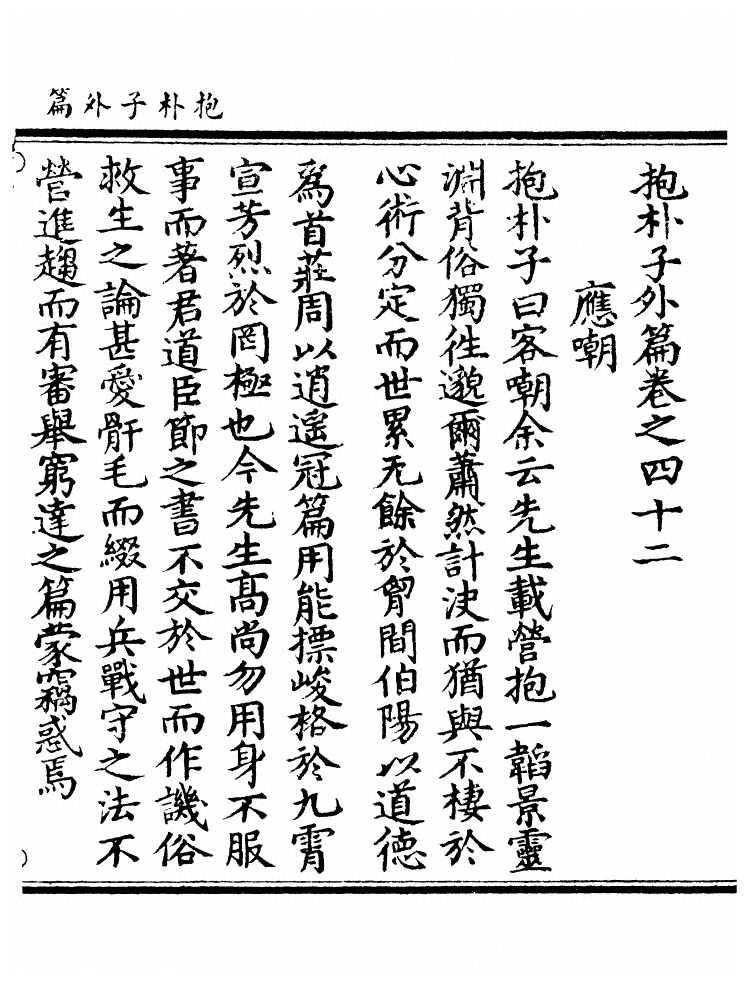 抱朴子外篇
抱朴子外篇卷之四十二
應嘲
抱朴子曰客嘲余云先生載營抱一韜景靈
淵背俗獨徃邈爾蕭然計決而猶與不棲於
心術分定而世累无餘於胷間伯陽以道德
爲首莊周以逍遥冠篇用能摽峻格於九霄
宣芳烈於罔極也今先生髙尚勿用身不服
事而著君道臣節之書不交於世而作譏俗
救生之論甚愛骭毛而綴用兵戰守之法不
營進趨而有審舉窮達之篇蒙竊惑焉